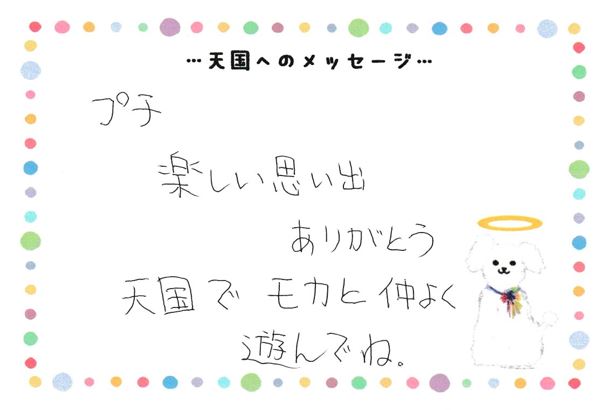 …天国へのメッセージ…
プチ
楽しい思い出
ありがとう
天国で モカと 仲よく
遊んでね。